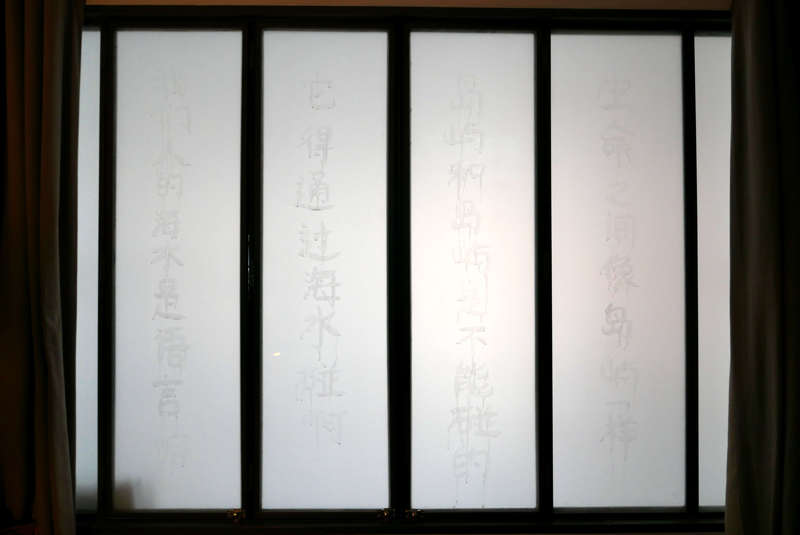 生命之间像岛屿一样
岛屿和岛屿不能碰的
它得通过海水碰啊
我们人的海水是语言啊